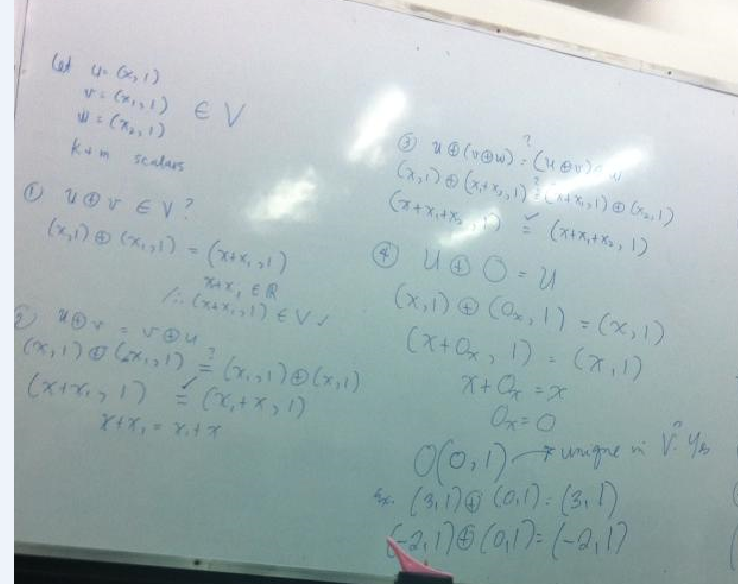 Let u = (x, 1)
v = (x₁, 1) ∈ V
w = (x₂, 1)
k & m scalars
① u ⊕ v ∈ V?
(x, 1) ⊕ (x₁, 1) = (x+x₁, 1)
x+x₁ ∈ ℝ
∴ (x+x₁, 1) ∈ V ✓
② u ⊕ v = v ⊕ u
(x, 1) ⊕ (x₁, 1) ≟ (x₁, 1) ⊕ (x, 1)
(x+x₁, 1) ≚ (x₁+x, 1)
x+x₁ = x₁+x
③ u ⊕ (v ⊕ w) ≟ (u ⊕ v) w
(x, 1) ⊕ (x₁+x₂, 1) ≟ (x+x₁, 1) ⊕ (x₂, 1)
(x+x₁+x₂, 1) ≚ (x+x₁+x₂, 1)
④ U ⊕ O = U
(x, 1) ⊕ (Oₓ, 1) = (x, 1)
(x+Oₓ, 1) = (x, 1)
x+Oₓ = x
Oₓ = 0
O(0, 1) → unique in V. Yes
Ex. (3, 1) ⊕ (0, 1) = (3, 1)
(-2, 1) ⊕ (0, 1) = (-2, 1)